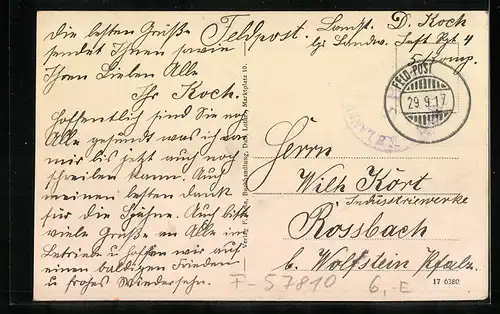 Die besten Grüße
sendet Ihnen sowie
Ihren Lieben Alle
Ihr Koch.
Hoffentlich sind Sie noch
Alle gesund was ich von
mir bis jetzt auch noch
schreiben kann. Auch
meinen besten dank
für die Spähne. Auch bitte
viele Grüße an Alle im
Betriebe u. hoffen wir auf
einen baldigen Frieden
u frohes Wiedersehn.
Feldpost.
Landst. D. Koch
Landw. Inft Rgt 4
5 Komp.
FELD-POST
29 9.17
Herrn
Wilh Kört
Industriewerke
Rossbach
b. Wolfstein Pfalz.
Marktplatz 10.
17 0380
F-57810
6,-E